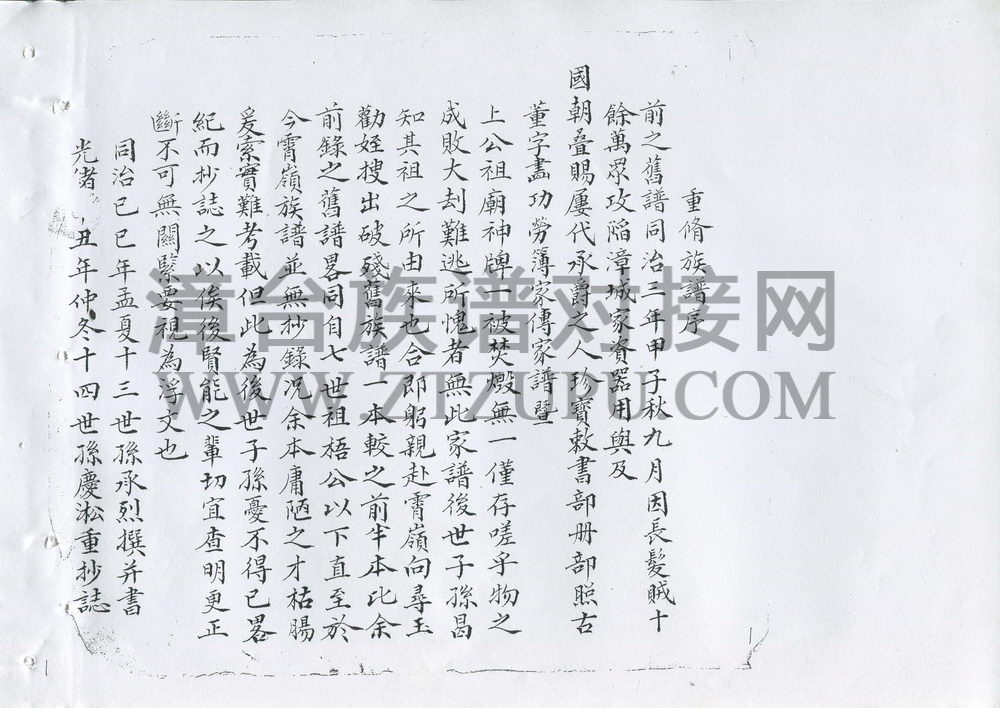 重脩族譜序
前之舊譜同治三年甲子秋九月因長髮賊十
餘萬眾攻陷漳城家資器用與及
國朝叠賜屢代承爵之人珍寶敕書部册部照古
董字畫功勞簿家傳家譜暨
上公祖廟神牌一被焚燬無一僅存嗟乎物之
成敗大刦難逃所愧者無此家譜後世子孫曷
知其祖之所由來也合即躬親赴霄嶺向尋玉
勸姪搜出破殘舊族譜一本較之前半本比余
前錄之舊譜畧同自七世祖梧公以下直至於
今霄嶺族譜並無抄錄况余本庸陋之才枯腸
爰索實難考載但此為後世子孫憂不得已畧
紀而抄誌之以俟後賢能之輩切宜查明更正
斷不可無關緊要視為浮文也
同治己巳年孟夏十三世孫承烈撰并書
光緒 丑年仲冬十四世孫慶淞重抄誌
漳台族谱对接网
WWW.ZTZUPU.COM